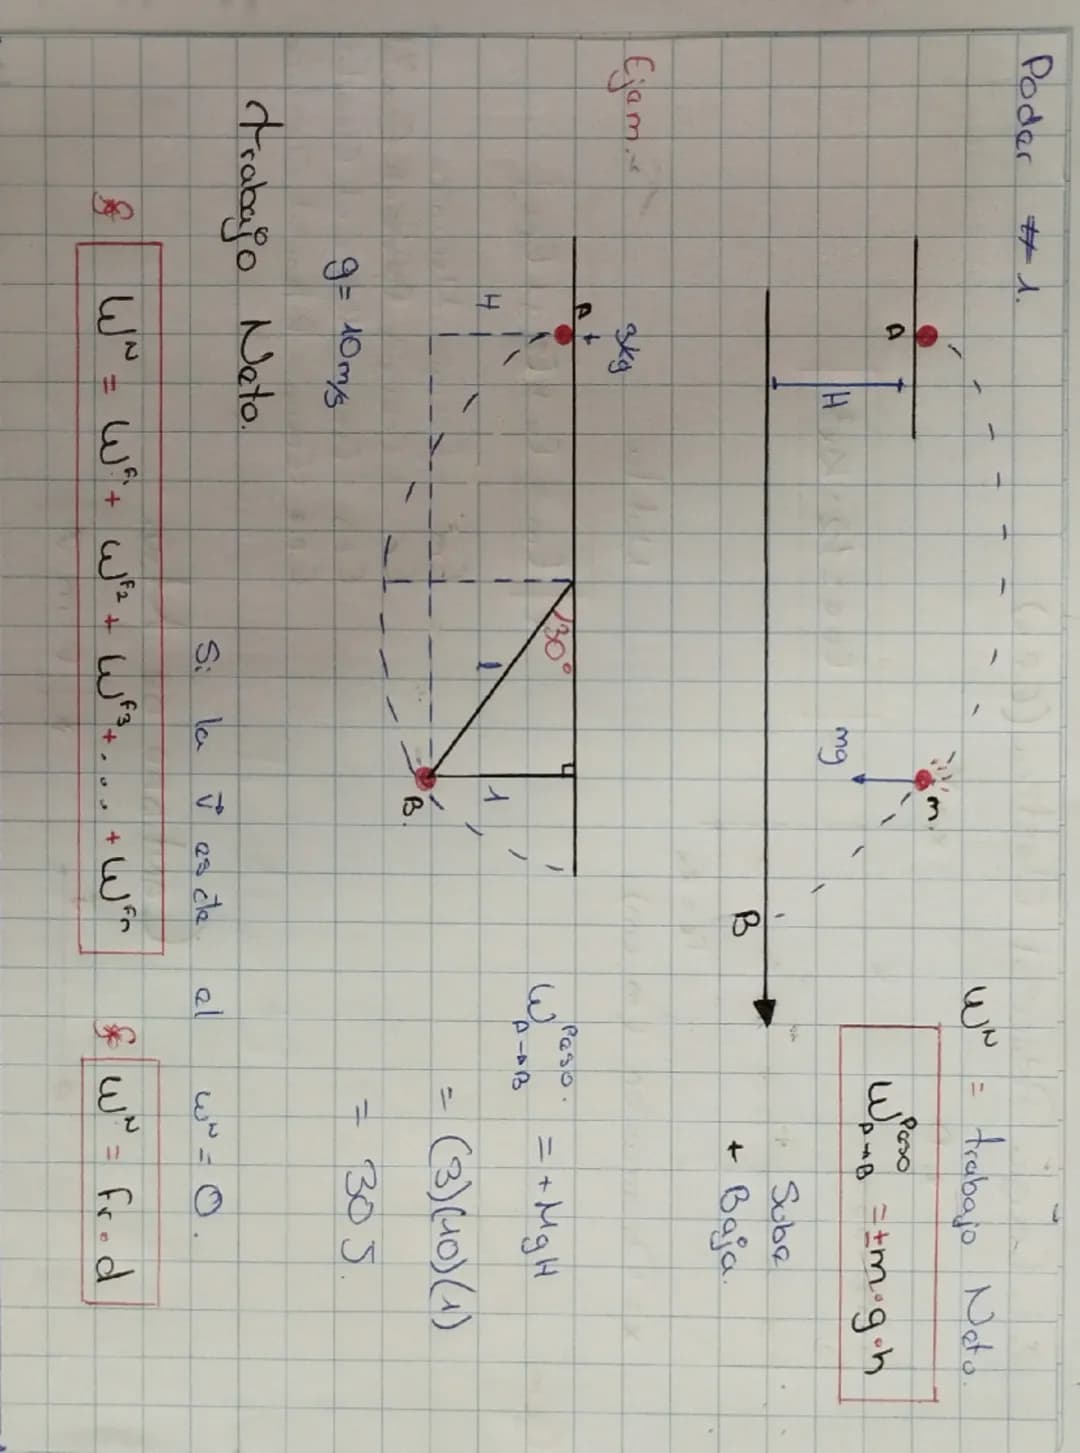 Poder #1.
Wᴺ = trabajo Neto.
A
H
mg
m.
B
W Peso A→B = ±m·g·h
- Sube
+ Baja.
Ejem:
3kg
A
H
30°
1
1
B.
g= 10m/s
W Peso A→B = +MgH
= (3)(10)(1)
= 30 J.
trabajo Neto.
Si la v⃗ es cte el Wᴺ = 0.
Wᴺ = Wᶠ¹ + Wᶠ² + Wᶠ³ + . . . + Wᶠⁿ
Wᴺ = Fr·d